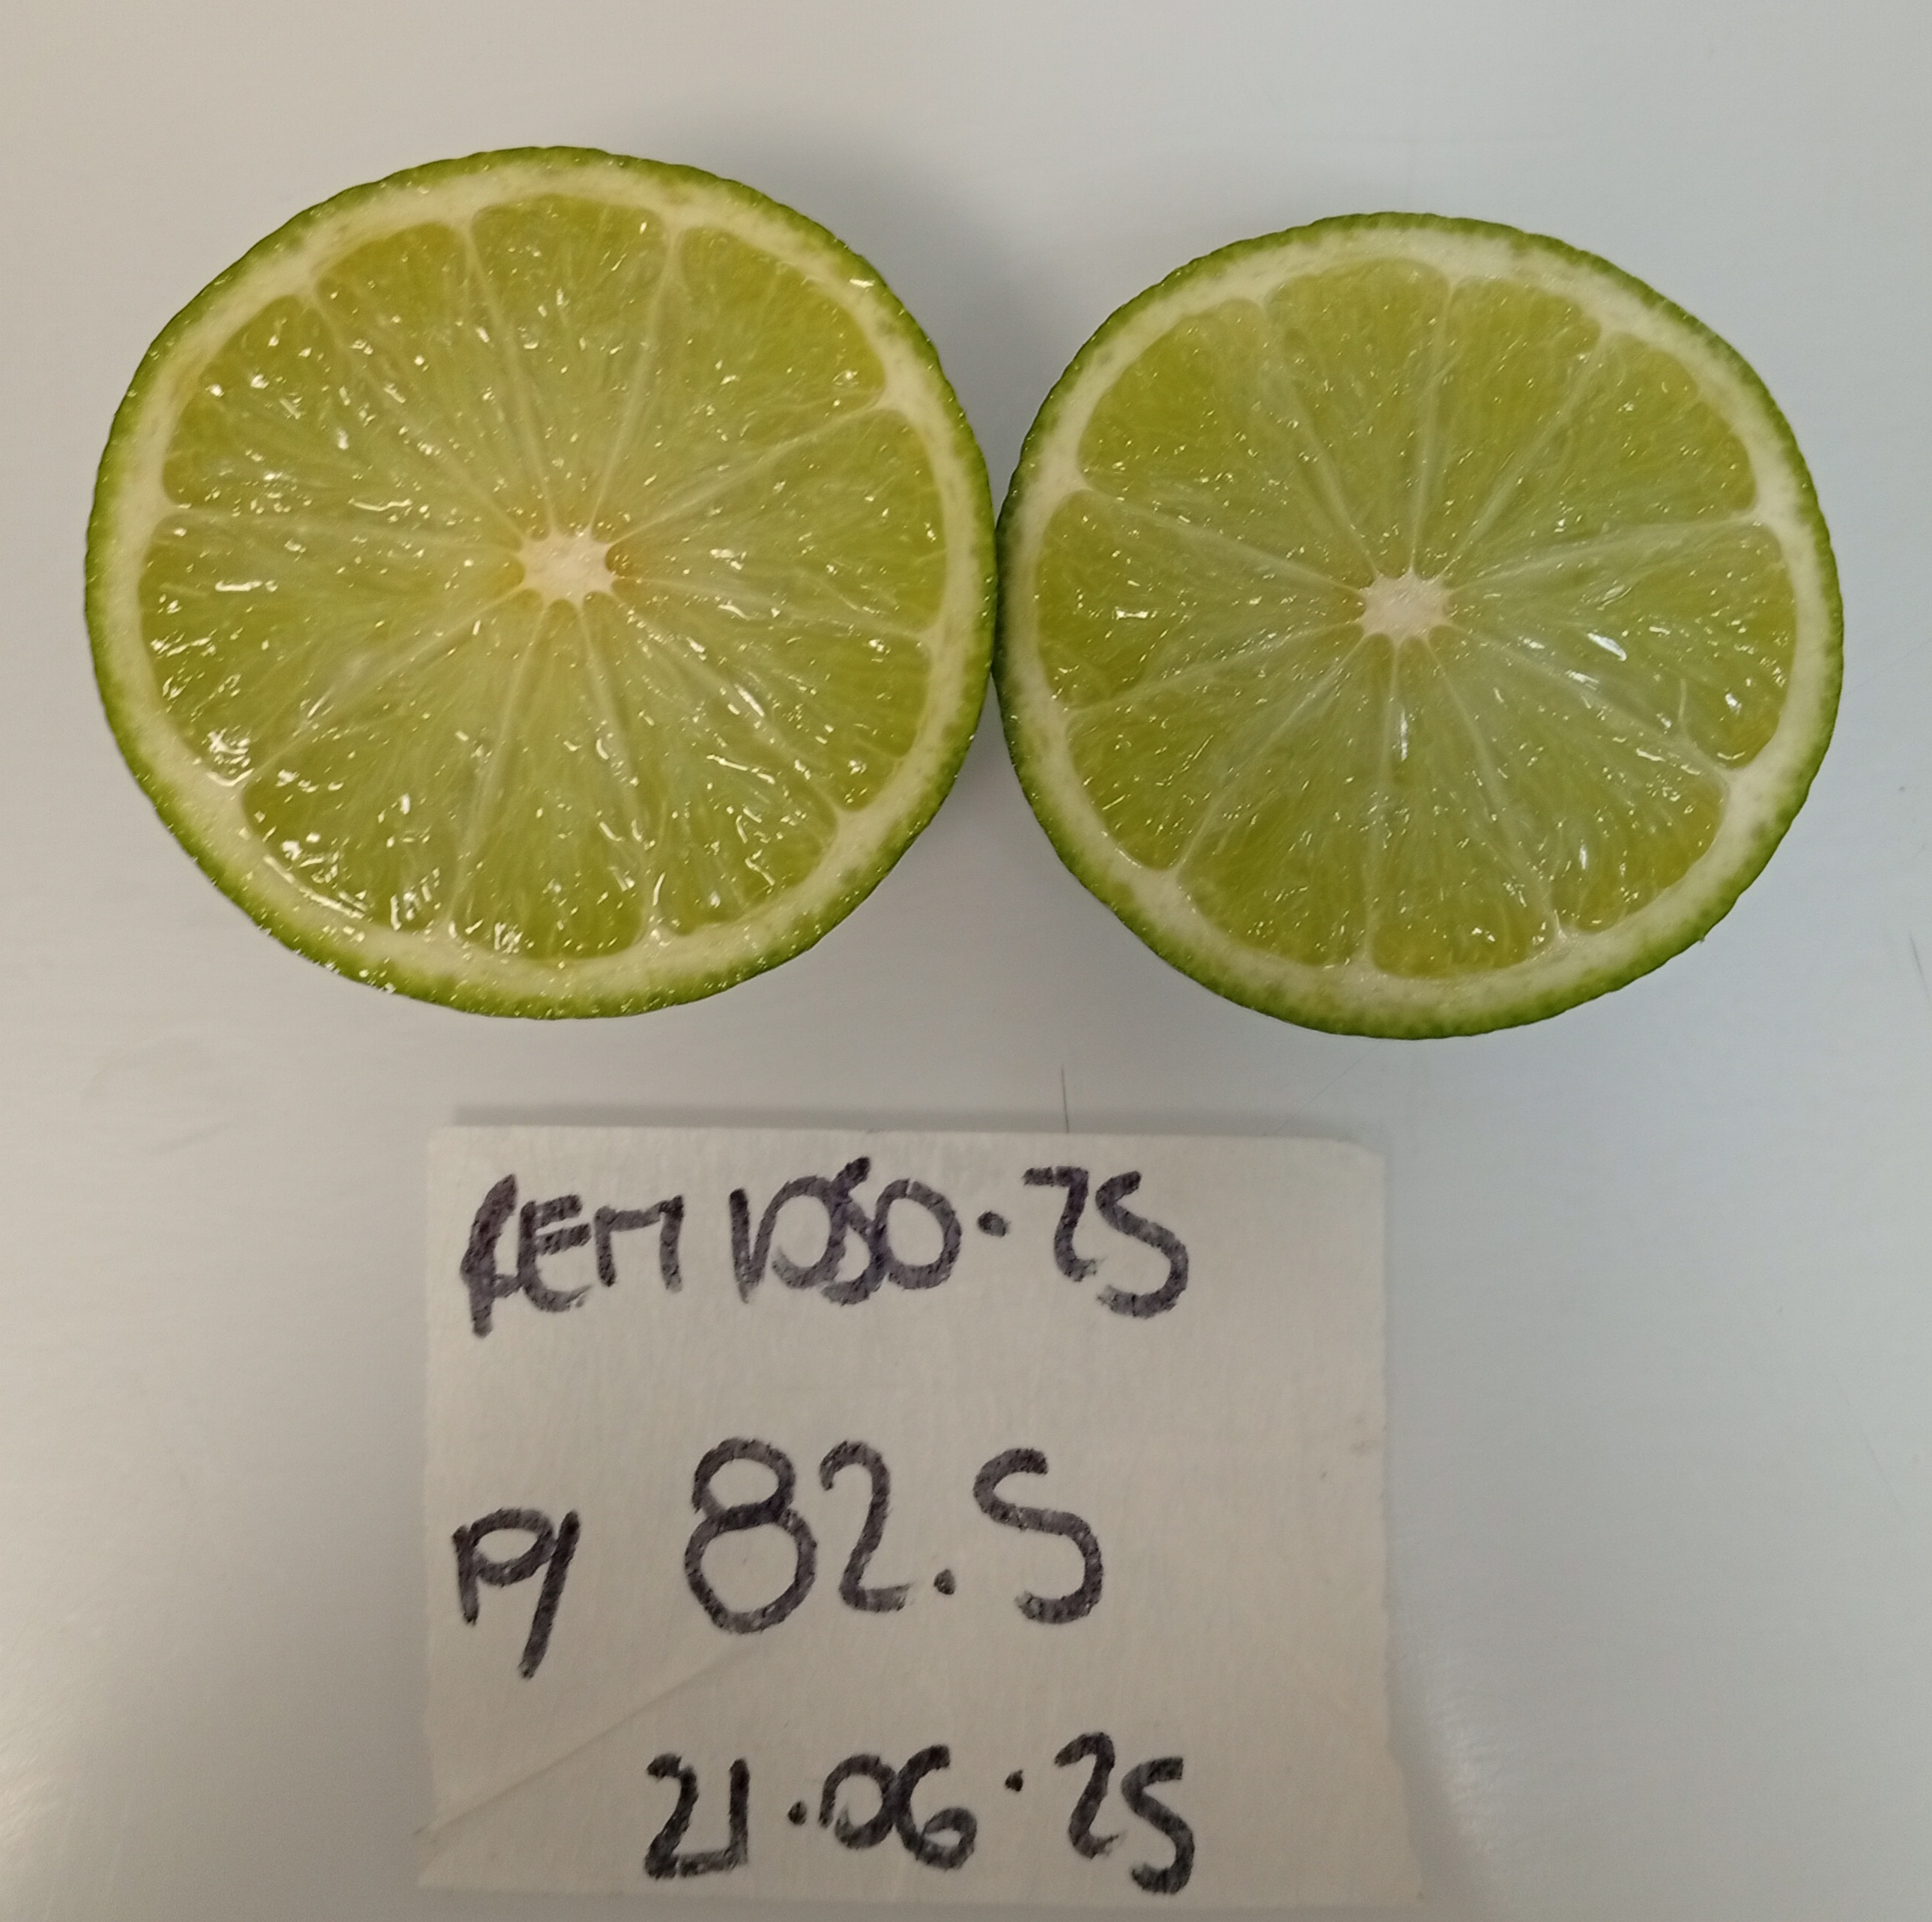 REM 1050.25
P/ 82.5
21.06.25